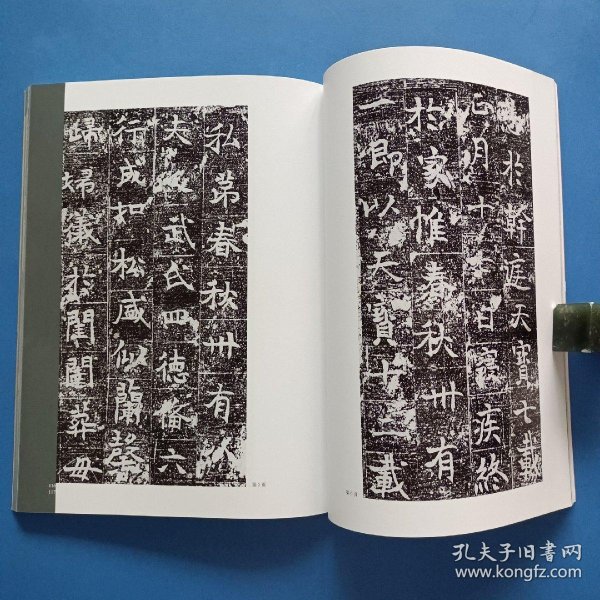 於幹庭天寶七載
正月十日寢疾終
於家惟春秋卌有
一即以天寶十二載
私第春秋卌有八
夫人武氏四德備六
行成如松盛似蘭馨
歸婦儀於閨闈葬母
孔夫子旧书网
www.kongfz.com